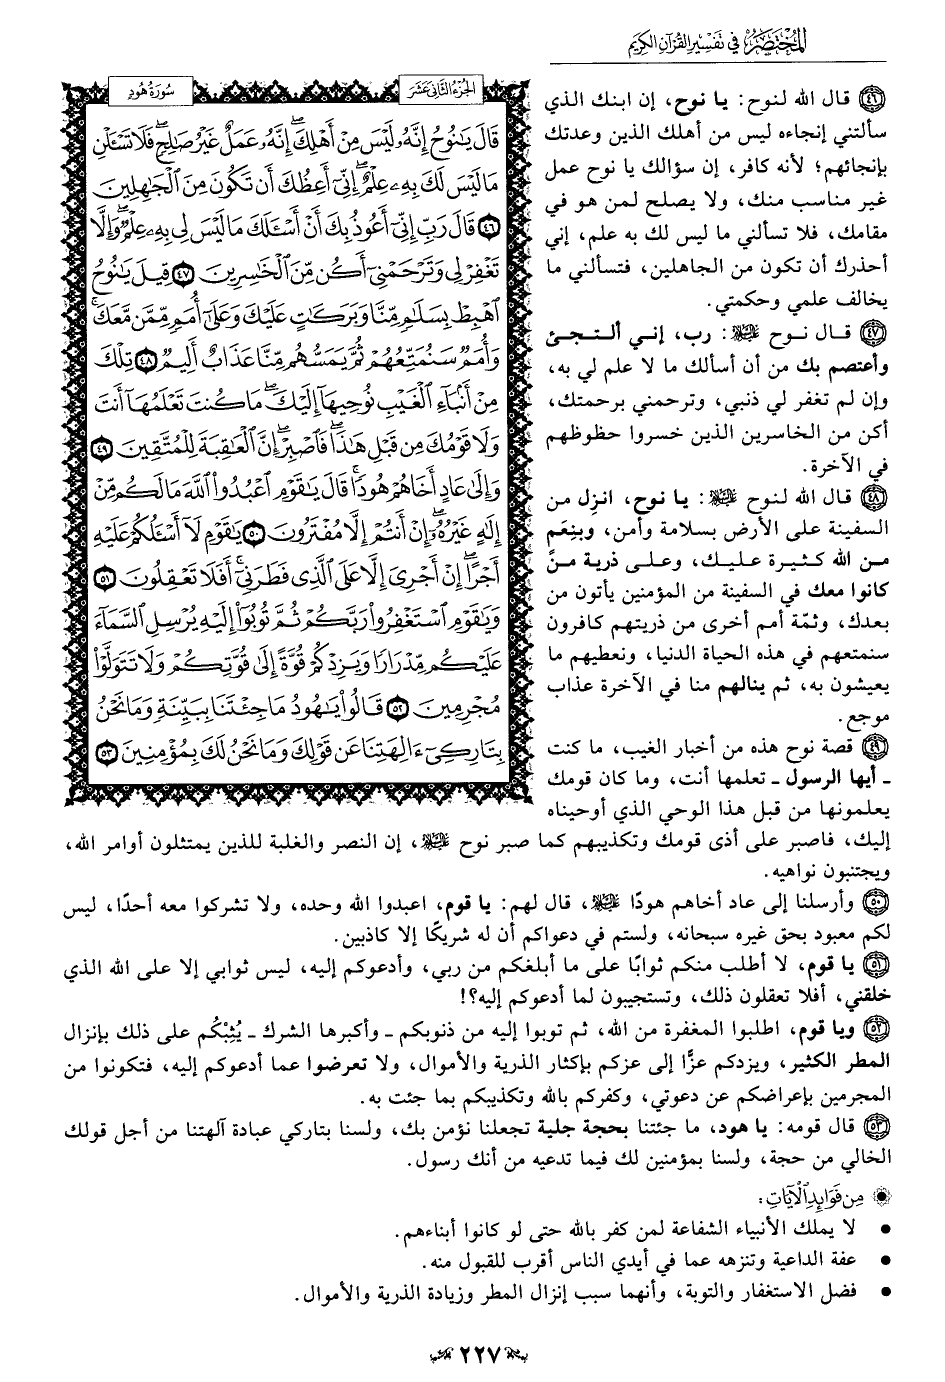 المختصر في تفسير القرآن الكريم
الجزء الثاني عشر
سورة هود
قَالَ يَٰنُوحُ إِنَّهُۥ لَيْسَ مِنْ أَهْلِكَۖ إِنَّهُۥ عَمَلٌ غَيْرُ صَٰلِحٖۖ فَلَا تَسْـَٔلْنِ
مَا لَيْسَ لَكَ بِهِۦ عِلْمٌۖ إِنِّيٓ أَعِظُكَ أَن تَكُونَ مِنَ ٱلْجَٰهِلِينَ
٤٦ قَالَ رَبِّ إِنِّيٓ أَعُوذُ بِكَ أَنْ أَسْـَٔلَكَ مَا لَيْسَ لِي بِهِۦ عِلْمٞۖ وَإِلَّا
تَغْفِرْ لِي وَتَرْحَمْنِيٓ أَكُن مِّنَ ٱلْخَٰسِرِينَ ٤٧ قِيلَ يَٰنُوحُ
ٱهْبِطْ بِسَلَٰمٖ مِّنَّا وَبَرَكَٰتٍ عَلَيْكَ وَعَلَىٰٓ أُمَمٖ مِّمَّن مَّعَكَۚ
وَأُمَمٞ سَنُمَتِّعُهُمْ ثُمَّ يَمَسُّهُم مِّنَّا عَذَابٌ أَلِيمٞ ٤٨ تِلْكَ
مِنْ أَنۢبَآءِ ٱلْغَيْبِ نُوحِيهَآ إِلَيْكَۖ مَا كُنتَ تَعْلَمُهَآ أَنتَ
وَلَا قَوْمُكَ مِن قَبْلِ هَٰذَاۖ فَٱصْبِرْۖ إِنَّ ٱلْعَٰقِبَةَ لِلْمُتَّقِينَ ٤٩
وَإِلَىٰ عَادٍ أَخَاهُمْ هُودٗاۚ قَالَ يَٰقَوْمِ ٱعْبُدُواْ ٱللَّهَ مَا لَكُم مِّنْ
إِلَٰهٍ غَيْرُهُۥٓۖ إِنْ أَنتُمْ إِلَّا مُفْتَرُونَ ٥٠ يَٰقَوْمِ لَآ أَسْـَٔلُكُمْ عَلَيْهِ
أَجْرًاۖ إِنْ أَجْرِيَ إِلَّا عَلَى ٱلَّذِي فَطَرَنِيٓۚ أَفَلَا تَعْقِلُونَ ٥١
وَيَٰقَوْمِ ٱسْتَغْفِرُواْ رَبَّكُمْ ثُمَّ تُوبُوٓاْ إِلَيْهِ يُرْسِلِ ٱلسَّمَآءَ
عَلَيْكُم مِّدْرَارٗا وَيَزِدْكُمْ قُوَّةً إِلَىٰ قُوَّتِكُمْ وَلَا تَتَوَلَّوْاْ
مُجْرِمِينَ ٥٢ قَالُواْ يَٰهُودُ مَا جِئْتَنَا بِبَيِّنَةٖ وَمَا نَحْنُ
بِتَارِكِيٓ ءَالِهَتِنَا عَن قَوْلِكَ وَمَا نَحْنُ لَكَ بِمُؤْمِنِينَ ٥٣
٤٦ قال الله لنوح: يا نوح، إن ابنك الذي
سألتني إنجاءه ليس من أهلك الذين وعدتك
بإنجائهم؛ لأنه كافر، إن سؤالك يا نوح عمل
غير مناسب منك، ولا يصلح لمن هو في
مقامك، فلا تسألني ما ليس لك به علم، إني
أحذرك أن تكون من الجاهلين، فتسألني ما
يخالف علمي وحكمتي.
٤٧ قال نوح عليه السلام: رب، إني ألتجئ
وأعتصم بك من أن أسألك ما لا علم لي به،
وإن لم تغفر لي ذنبي، وترحمني برحمتك،
أكن من الخاسرين الذين خسروا حظوظهم
في الآخرة.
٤٨ قال الله لنوح عليه السلام: يا نوح، انزِل من
السفينة على الأرض بسلامة وأمن، وبنِعَم
من الله كثيرة عليك، وعلى ذرية مَنْ
كانوا معك في السفينة من المؤمنين يأتون من
بعدك، وثمّة أمم أخرى من ذريتهم كافرون
سنمتعهم في هذه الحياة الدنيا، ونعطيهم ما
يعيشون به، ثم ينالهم منا في الآخرة عذاب
موجع.
٤٩ قصة نوح هذه من أخبار الغيب، ما كنت
ـ أيها الرسول ـ تعلمها أنت، وما كان قومك
يعلمونها من قبل هذا الوحي الذي أوحيناه
إليك، فاصبر على أذى قومك وتكذيبهم كما صبر نوح عليه السلام، إن النصر والغلبة للذين يمتثلون أوامر الله،
ويجتنبون نواهيه.
٥٠ وأرسلنا إلى عاد أخاهم هودًا عليه السلام، قال لهم: يا قوم، اعبدوا الله وحده، ولا تشركوا معه أحدًا، ليس
لكم معبود بحق غيره سبحانه، ولستم في دعواكم أن له شريكًا إلا كاذبين.
٥١ يا قوم، لا أطلب منكم ثوابًا على ما أبلغكم من ربي، وأدعوكم إليه، ليس ثوابي إلا على الله الذي
خلقني، أفلا تعقلون ذلك، وتستجيبون لما أدعوكم إليه؟!
٥٢ ويا قوم، اطلبوا المغفرة من الله، ثم توبوا إليه من ذنوبكم ـ وأكبرها الشرك ـ يُثِبْكُم على ذلك بإنزال
المطر الكثير، ويزدكم عزًّا إلى عزكم بإكثار الذرية والأموال، ولا تعرضوا عما أدعوكم إليه، فتكونوا من
المجرمين بإعراضكم عن دعوتي، وكفركم بالله وتكذيبكم بما جئت به.
٥٣ قال قومه: يا هود، ما جئتنا بحجة جلية تجعلنا نؤمن بك، ولسنا بتاركي عبادة آلهتنا من أجل قولك
الخالي من حجة، ولسنا بمؤمنين لك فيما تدعيه من أنك رسول.
من فوائد الآيات:
• لا يملك الأنبياء الشفاعة لمن كفر بالله حتى لو كانوا أبناءهم.
• عفة الداعية وتنزهه عما في أيدي الناس أقرب للقبول منه.
• فضل الاستغفار والتوبة، وأنهما سبب إنزال المطر وزيادة الذرية والأموال.
٢٢٧